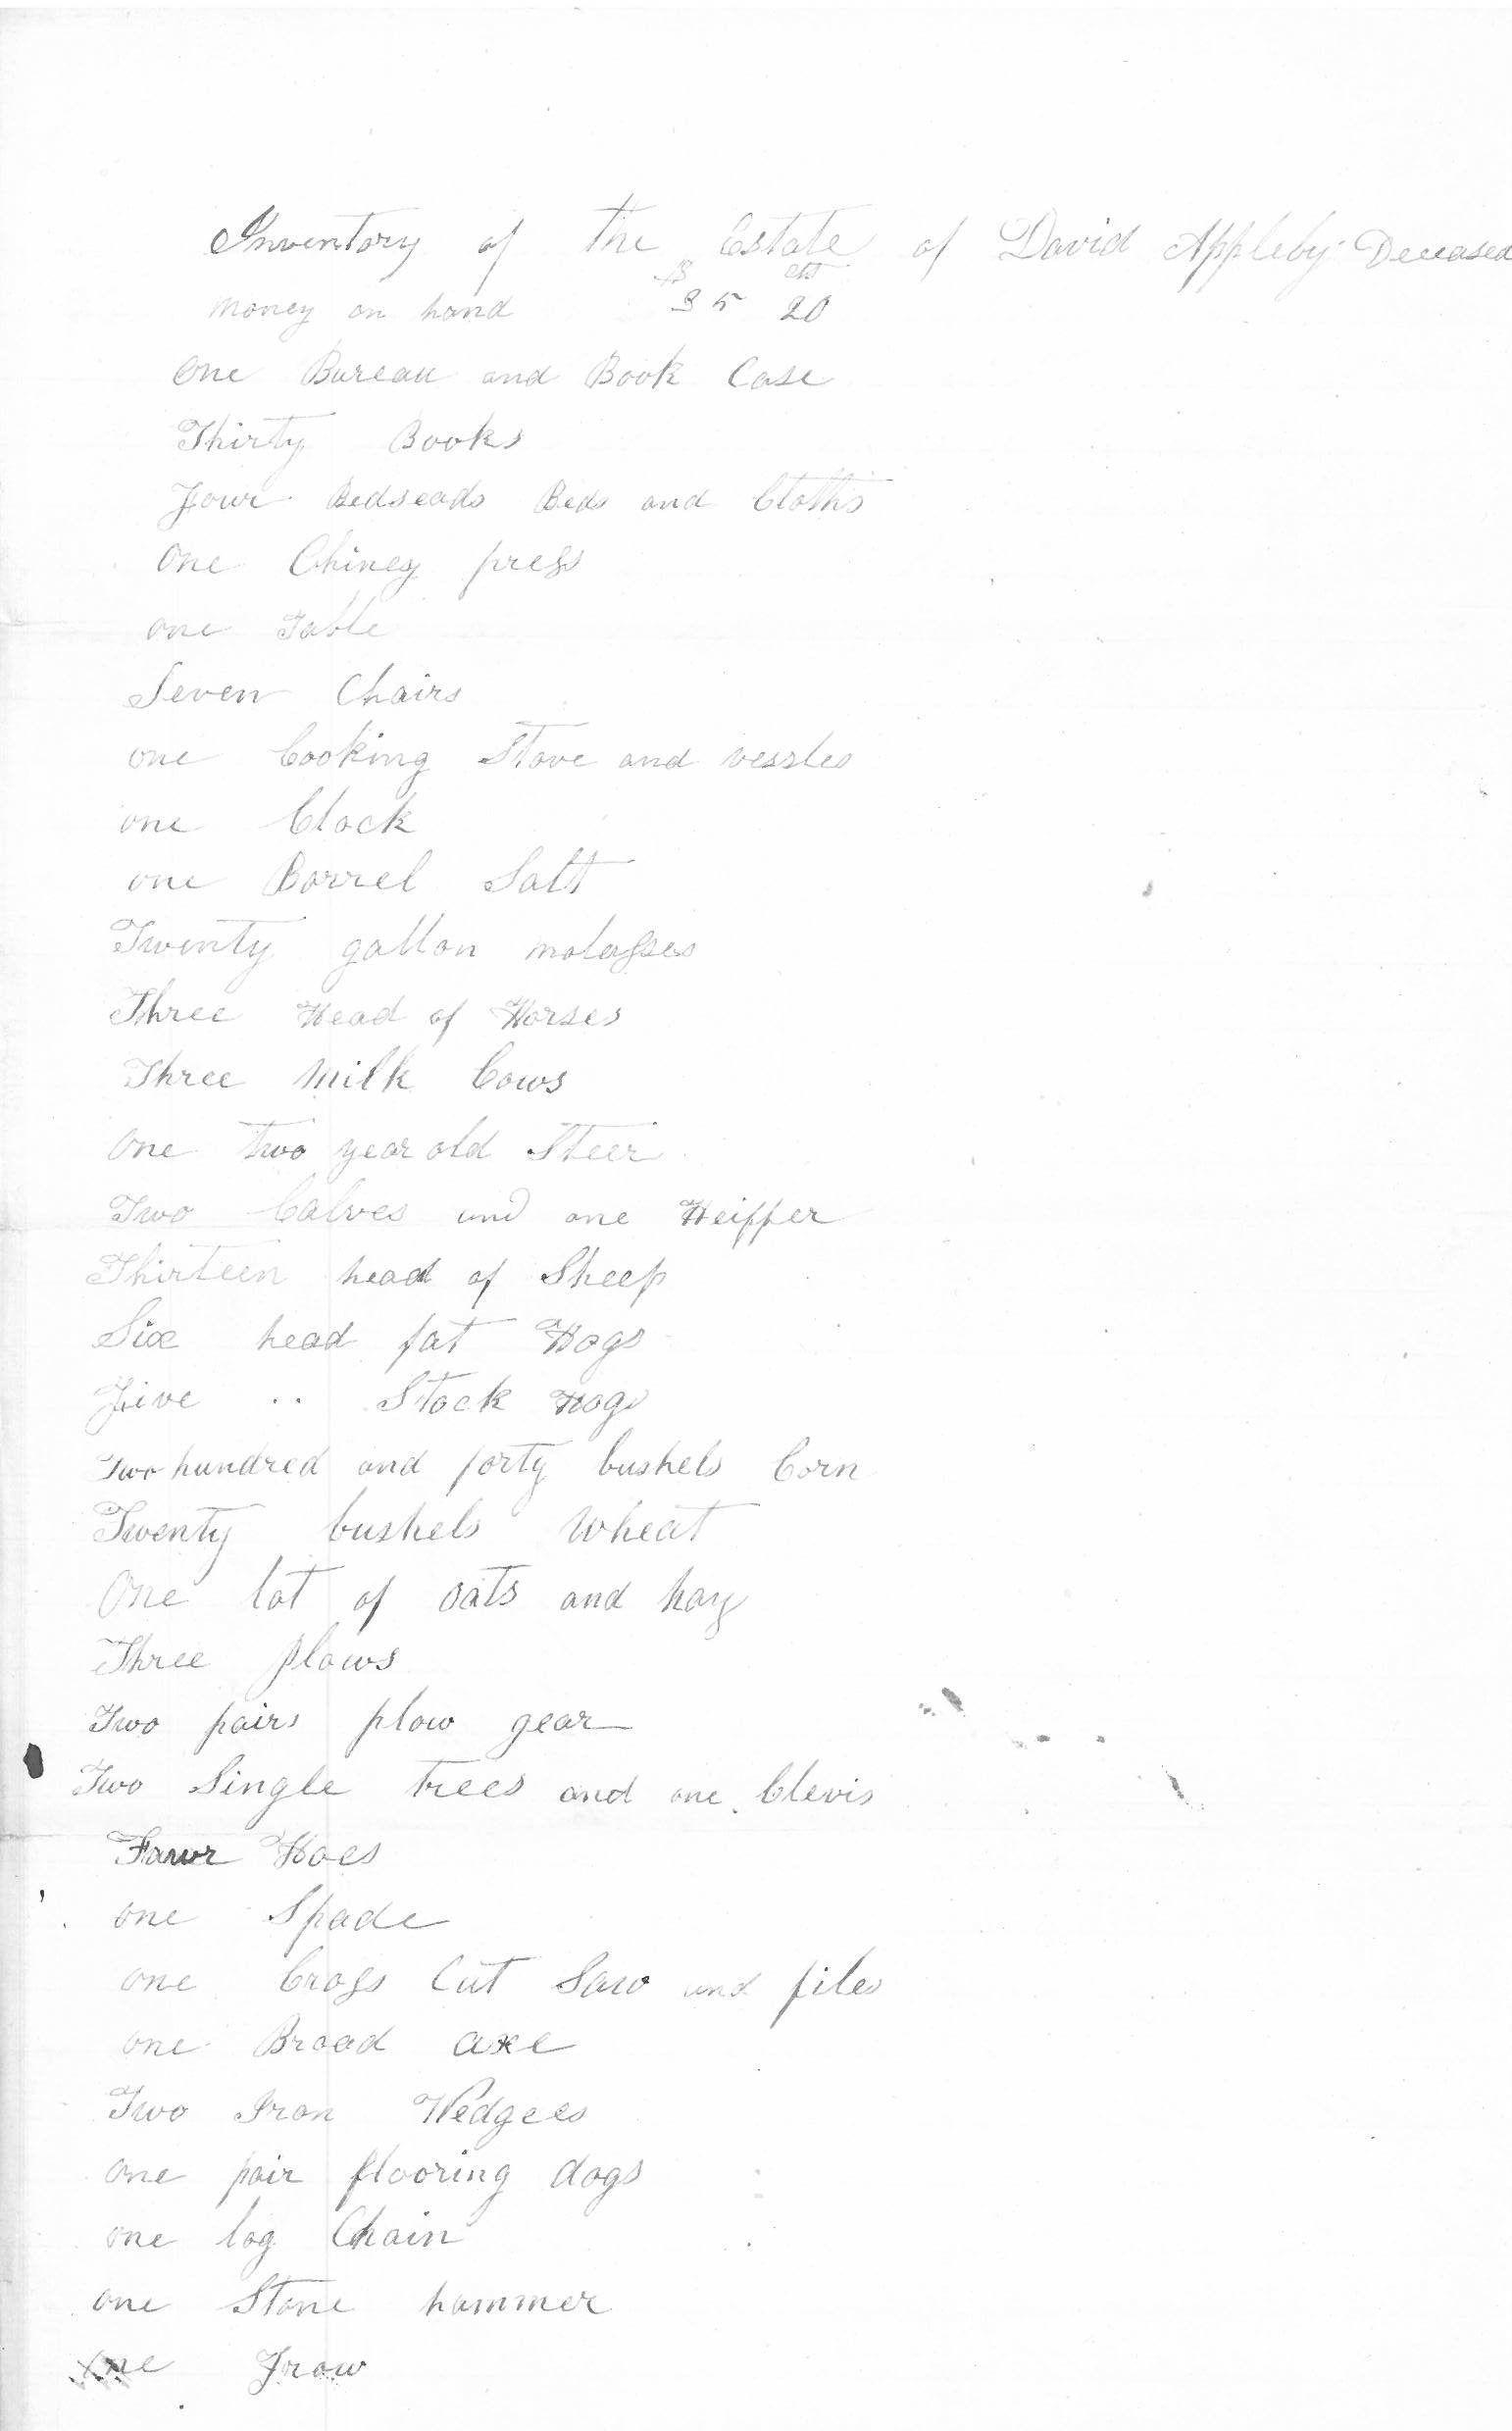 Inventory of the Estate of David Appleby Deceased
$ cts
money on hand 35 20
One Bureau and Book Case
Thirty Books
Four Bedseads Beds and Cloths
One Chiney press
one Table
Seven Chairs
one Cooking Stove and vessles
one Clock
one Barrel Salt
Twenty gallon molasses
Three Head of Horses
Three milk Cows
One two year old Steer
Two Calves and one Heiffer
Thirteen head of Sheep
Six head fat Hogs
Five .. Stock Hogs
Two hundred and forty bushels Corn
Twenty bushels Wheat
One lot of oats and hay
Three plows
Two pairs plow gear
Two Single trees and one Clevis
Four Hoes
one Spade
one Cross Cut Saw and files
one Broad axe
Two Iron Wedgees
one pair flooring dogs
one log Chain
one Stone hammer
one Frow